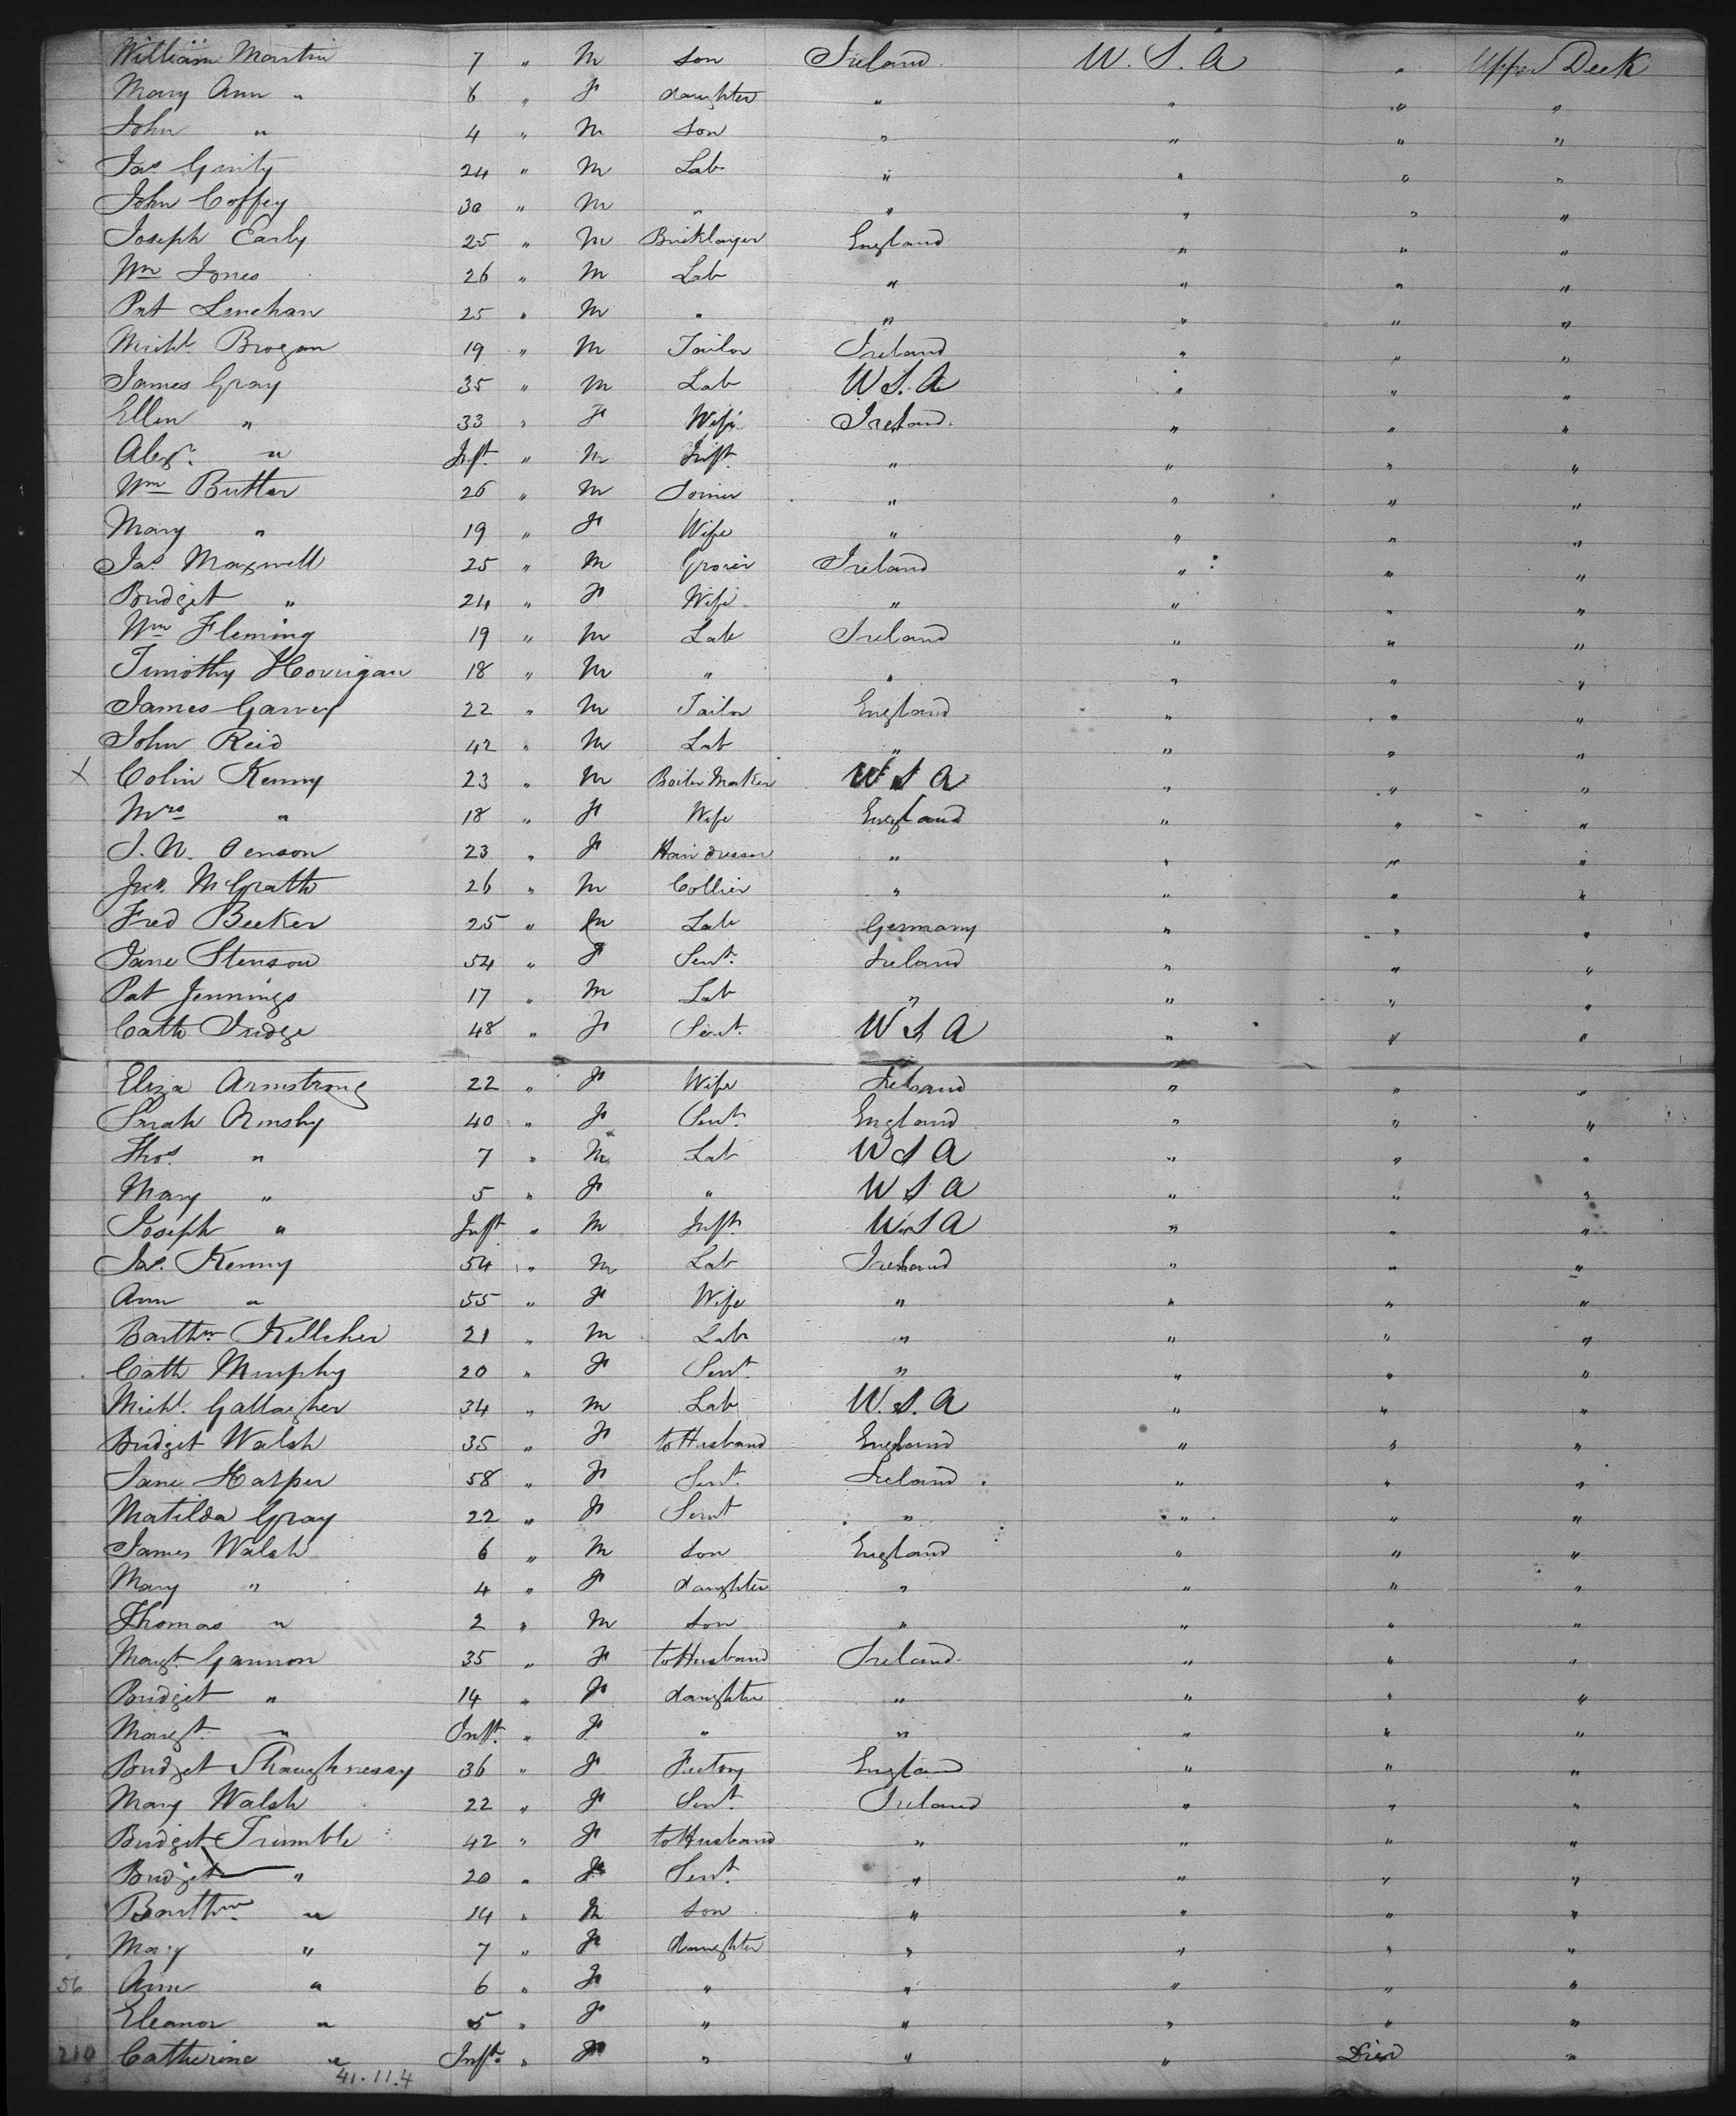 William Martin 7 " M son Ireland U. S. A " Upper Deck
Mary Ann " 6 " F daughter " " " "
John " 4 " M son " " " "
Jas. Garrity 24 " M Lab " " " "
John Coffey 30 " M " " " " "
Joseph Early 25 " M Bricklayer England " " "
Wm Jones 26 " M Lab " " " "
Pat Lenehan 25 " M " " " " "
Michl. Brogan 19 " M Tailor Ireland " " "
James Gray 35 " M Lab U. S. A " " "
Ellen " 33 " F Wife Ireland " " "
Alexr. " Inft. " M Inft. " " " "
Wm Butler 26 " M Joiner " " " "
Mary " 19 " F Wife " " " "
Jas Maxwell 25 " M Grocer Ireland " " "
Bridget " 24 " F Wife " " " "
Wm Fleming 19 " M Lab Ireland " " "
Timothy Horrigan 18 " M " " " " "
James Garvey 22 " M Tailor England " " "
John Reid 42 " M Lab " " " "
X Colin Kenny 23 " M Boiler Maker U S A " " "
Mrs " 18 " F Wife England " " "
J. W. Benson 23 " F Hair dresser " " " "
Jno. McGrath 26 " M Collier " " " "
Fred Becker 25 " M Lab Germany " " "
Jane Stenson 54 " F Servt. Ireland " " "
Pat Jennings 17 " M Lab " " " "
Cath Judge 48 " F Servt. U S A " " "
Eliza Armstrong 22 " F Wife Ireland " " "
Sarah Ormsby 40 " F Servt. England " " "
Thos. " 7 " M Lab U S A " " "
Mary " 5 " F " U S A " " "
Joseph " Inft " M Inft. U S A " " "
Jas. Kenny 54 " M Lab Ireland " " "
Ann " 55 " F Wife " " " "
Barthw Kelleher 21 " M Lab " " " "
Cath Murphy 20 " F Servt. " " " "
Michl. Gallagher 34 " M Lab U. S. A " " "
Bridget Walsh 35 " F to Husband England " " "
Jane Harper 58 " F Servt. Ireland " " "
Matilda Gray 22 " F Servt " " " "
James Walsh 6 " M son England " " "
Mary " 4 " F daughter " " " "
Thomas " 2 " M son " " " "
Margt. Gannon 35 " F to Husband Ireland " " "
Bridget " 14 " F daughter " " " "
Margt. " Inft. " F " " " " "
Bridget Shaughnessy 36 " F Factory England " " "
Mary Walsh 22 " F Servt. Ireland " " "
Bridget Trimble 42 " F to Husband " " " "
Bridget " 20 " F Servt. " " " "
Barthw " 14 " M son " " " "
Mary " 7 " F daughter " " " "
56 Ann " 6 " F " " " " "
Eleanor " 5 " F " " " " "
210 Catherine " Inft. " F " " " Died "
41.11.4